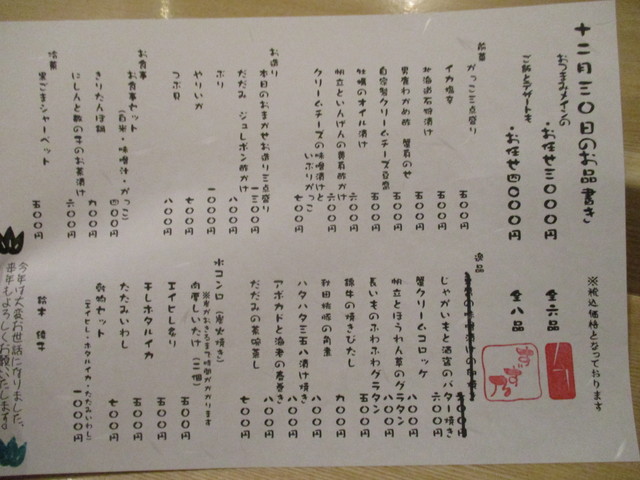 十二月三〇日のお品書き
※税込価格となっております
おつまみメインの
・お任せ三〇〇〇円 全六品
ご飯とデザートも
・お任せ四〇〇〇円 全八品
前菜
がっこ三点盛り 五〇〇円
イカ塩辛 五〇〇円
北海道石狩漬け 五〇〇円
男鹿わかめ酢 蟹身のせ 五〇〇円
自家製クリームチーズ豆腐 五〇〇円
牡蠣のオイル漬け 六〇〇円
帆立といんげんの黄身酢がけ 六〇〇円
クリームチーズの味噌漬けと
いぶりがっこ 七〇〇円
お造り
本日のおまかせお造り三点盛り 一三〇〇円
だだみ ジュレポン酢がけ 八〇〇円
ブリ 一〇〇〇円
やりいか 七〇〇円
つぶ貝 八〇〇円
お食事
お食事セット
(白米・味噌汁・がっこ) 四〇〇円
きりたんぽ鍋 九〇〇円
にしんと数の子のお茶漬け 六〇〇円
冷菓
黒ごまシャーベット 五〇〇円
逸品
じゃがいもと酒盗のバター焼き 六〇〇円
蟹クリームコロッケ 八〇〇円
帆立とほうれん草のグラタン 八〇〇円
長いものふわふわグラタン 五〇〇円
錦牛の焼きびたし 九〇〇円
八〇〇円
ハタハタ三五八漬け焼き 八〇〇円
アボカドと海老の春巻き 八〇〇円
だだみの茶碗蒸し 七〇〇円
水コンロ(炭火焼き)
※炭がおきるまで時間がかかります
肉厚しいたけ(二個) 五〇〇円
エイヒレ炙り 五〇〇円
干しホタルイカ 五〇〇円
たたみいわし 五〇〇円
乾物セット
(エイヒレ・ホタルイカ・たたみいわし) 一〇〇〇円
今年は大変お世話になりました。
来年もよろしくお願いいたします。